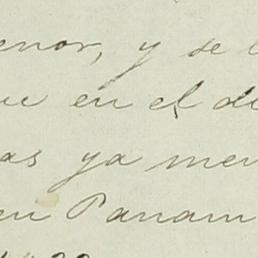 enor, y se
ue en el de
as ya men
en Panam